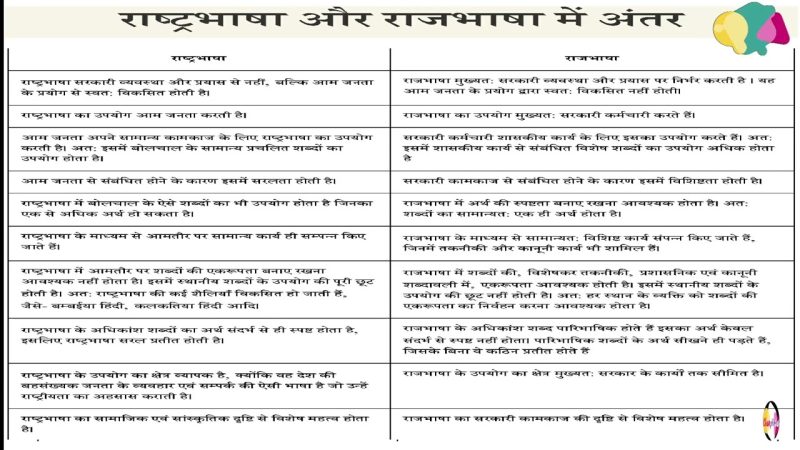 राष्ट्रभाषा और राजभाषा में अंतर
राष्ट्रभाषा
राजभाषा
राष्ट्रभाषा सरकारी व्यवस्था और प्रयास से नहीं, बल्कि आम जनता
के प्रयोग से स्वतः विकसित होती है।
राजभाषा मुख्यतः सरकारी व्यवस्था और प्रयास पर निर्भर करती है। यह
आम जनता के प्रयोग द्वारा स्वतः विकसित नहीं होती।
राष्ट्रभाषा का उपयोग आम जनता करती है।
राजभाषा का उपयोग मुख्यतः सरकारी कर्मचारी करते हैं।
आम जनता अपने सामान्य कामकाज के लिए राष्ट्रभाषा का उपयोग
करती है। अतः इसमें बोलचाल के सामान्य प्रचलित शब्दों का
उपयोग होता है।
सरकारी कर्मचारी शासकीय कार्य के लिए इसका उपयोग करते हैं। अतः
इसमें शासकीय कार्य से संबंधित विशेष शब्दों का उपयोग अधिक होता
है
आम जनता से संबंधित होने के कारण इसमें सरलता होती है।
सरकारी कामकाज से संबंधित होने के कारण इसमें विशिष्टता होती है।
राष्ट्रभाषा में बोलचाल के ऐसे शब्दों का भी उपयोग होता है जिनका
एक से अधिक अर्थ हो सकता है।
राजभाषा में अर्थ की स्पष्टता बनाए रखना आवश्यक होता है। अतः
शब्दों का सामान्यतः एक ही अर्थ होता है।
राष्ट्रभाषा के माध्यम से आमतौर पर सामान्य कार्य ही सम्पन्न किए
जाते हैं।
राजभाषा के माध्यम से सामान्यतः विशिष्ट कार्य संपन्न किए जाते हैं,
जिनमें तकनीकी और कानूनी कार्य भी शामिल हैं।
राष्ट्रभाषा में आमतौर पर शब्दों की एकरूपता बनाए रखना
आवश्यक नहीं होता है। इसमें स्थानीय शब्दों के उपयोग की पूरी छूट
होती है। अतः राष्ट्रभाषा की कई शैलियाँ विकसित हो जाती हैं,
जैसे- बम्बईया हिंदी, कलकतिया हिंदी आदि।
राजभाषा में शब्दों की, विशेषकर तकनीकी, प्रशासनिक एवं कानूनी
शब्दावली में, एकरूपता आवश्यक होती है। इसमें स्थानीय शब्दों के
उपयोग की छूट नहीं होती है। अतः हर स्थान के व्यक्ति को शब्दों की
एकरूपता का निर्वहन करना आवश्यक होता है।
राष्ट्रभाषा के अधिकांश शब्दों का अर्थ संदर्भ से ही स्पष्ट होता है,
इसलिए राष्ट्रभाषा सरल प्रतीत होती है।
राजभाषा के अधिकांश शब्द पारिभाषिक होते हैं इसका अर्थ केवल
संदर्भ से स्पष्ट नहीं होता। पारिभाषिक शब्दों के अर्थ सीखने ही पड़ते हैं,
जिसके बिना वे कठिन प्रतीत होते हैं
राष्ट्रभाषा के उपयोग का क्षेत्र व्यापक है, क्योंकि वह देश की
बहुसंख्यक जनता के व्यवहार एवं सम्पर्क की ऐसी भाषा है जो उन्हें
राष्ट्रीयता का अहसास कराती है।
राजभाषा के उपयोग का क्षेत्र मुख्यतः सरकार के कार्यों तक सीमित है।
राष्ट्रभाषा का सामाजिक एवं सांस्कृतिक दृष्टि से विशेष महत्व होता
है।
राजभाषा का सरकारी कामकाज की दृष्टि से विशेष महत्व होता है।